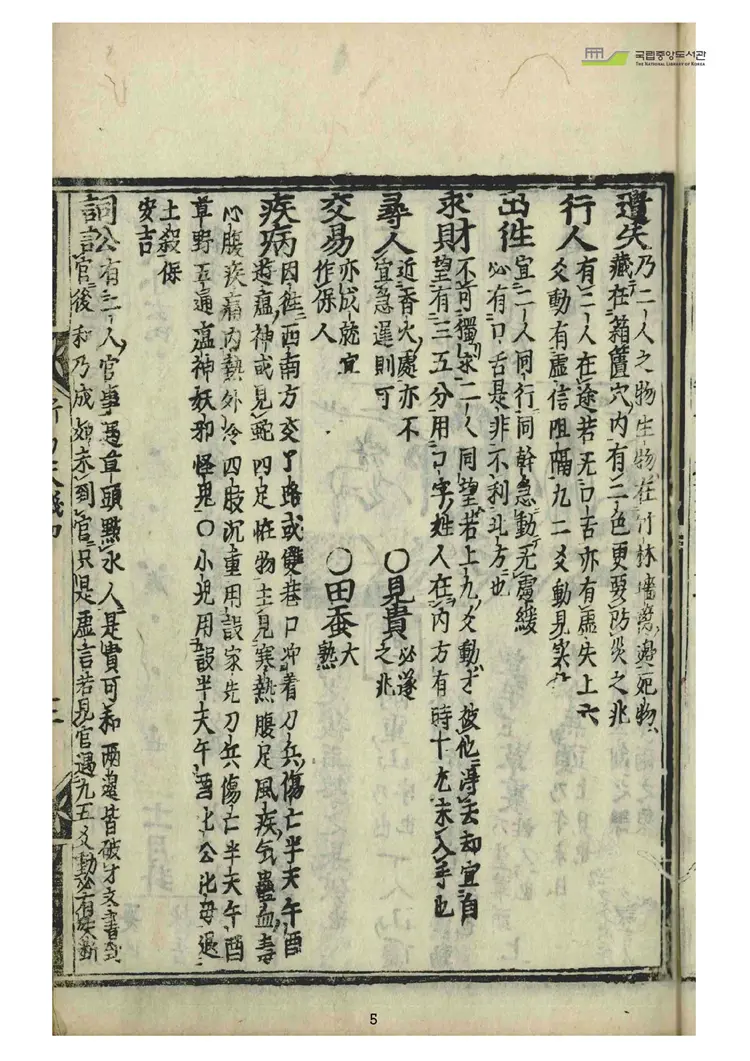 국립중앙도서관
THE NATIONAL LIBRARY OF KOREA
遺失 乃二人之物生物在竹林墻邊死物
藏在箱篋穴內有三色更要防災之兆
行人 有三人在途若无口舌亦有虛失上六
爻動有虛信阻隔九二爻動見
出往 宜二人同行同幹急動无慮緩
必有口舌是非不利斗方也
求財 不可獨求二人同望若上九爻動才被他得去却宜自
望有三五分用口字姓人在內方有時十尤未入手也
尋人 近香火處亦不
宜急遲則可
○見貴 必遂
之兆
交易 亦成就宜
作保人
○田蚕 大
熟
疾病 因往西南方交丫路或雙巷口冲着刀兵傷亡半天午酉
遊瘟神或見蛇四足怪物主見寒熱腹足風疾気蠱血毒
心腹疾痛內熱外冷四肢沉重用設家先刀兵傷亡半天午酉
草野五通瘟神妖邪怪鬼○小兒用設半天午酉七公七母退
土殺保
安吉
詞訟 有二人官事遇草頭點水人是貴可和兩邊皆破才文書到
官後和乃成如未到官只是虛言若見官遇九五爻動必有
三
5